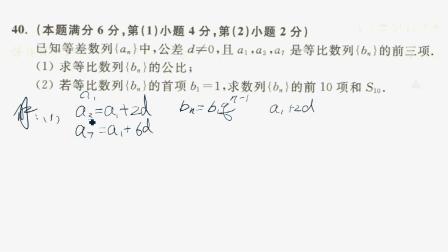 40. (本题满分 6 分,第(1)小题 4 分,第(2)小题 2 分)
已知等差数列{aₙ}中,公差 d≠0,且 a₁,a₃,a₇ 是等比数列{bₙ}的前三项.
(1) 求等比数列{bₙ}的公比;
(2) 若等比数列{bₙ}的首项 b₁=1,求数列{bₙ}的前 10 项和 S₁₀.
a₁
解:(1) a₃=a₁+2d bₙ=b₁qⁿ⁻¹ a₁+2d
a₇=a₁+6d